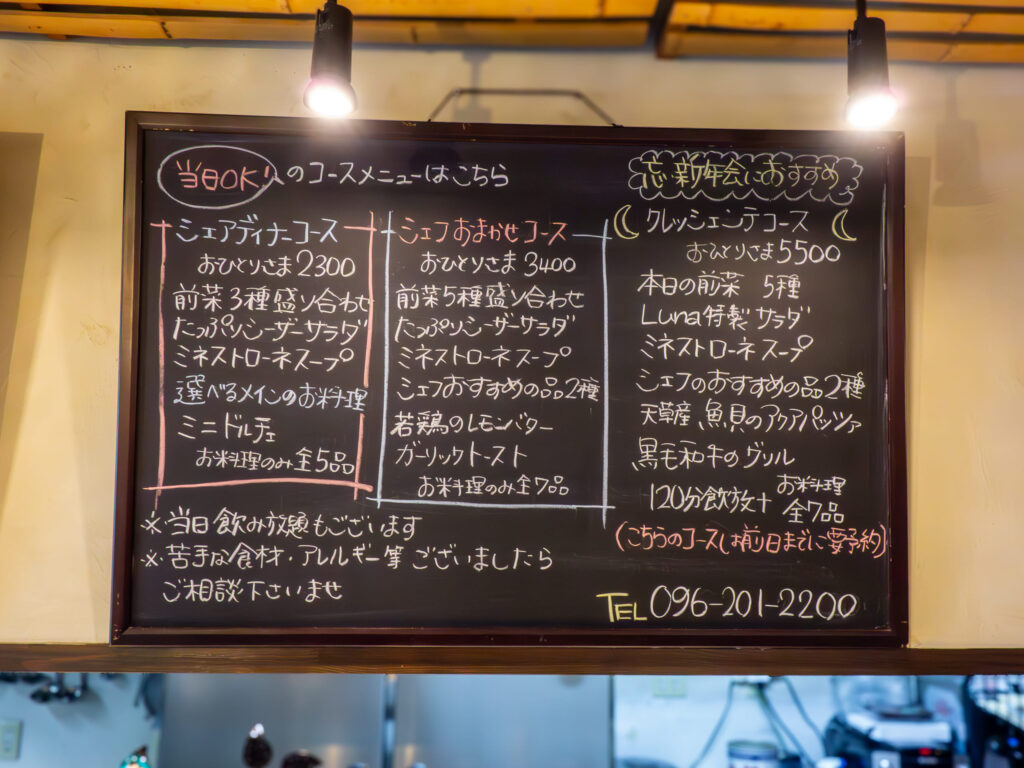 当日OK!のコースメニューはこちら
シェアディナーコース
おひとりさま2300
前菜3種盛り合わせ
たっぷりシーザーサラダ
ミネストローネスープ
選べるメインのお料理
ミニドルチェ
お料理のみ全5品
シェフおまかせコース
おひとりさま3400
前菜5種盛り合わせ
たっぷりシーザーサラダ
ミネストローネスープ
シェフおすすめの品2種
若鶏のレモンバター
ガーリックトースト
お料理のみ全7品
※当日飲み放題もございます
※苦手な食材・アレルギー等ございましたら
ご相談下さいませ
忘・新年会におすすめ
クレッシェンテコース
おひとりさま5500
本日の前菜 5種
Luna特製サラダ
ミネストローネスープ
シェフのおすすめの品2種
天草産、魚貝のアクアパッツァ
黒毛和牛のグリル
120分飲放+お料理全7品
(こちらのコースは前日までに要予約)
TEL 096-201-2200